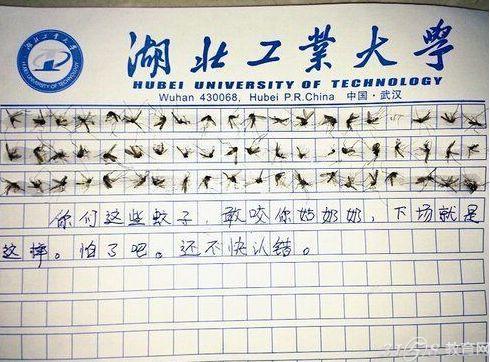 湖北工業大學
HUBEI UNIVERSITY OF TECHNOLOGY
Wuhan 430068, Hubei P.R.China 中国·武汉
你们这些蚊子,敢咬你姑奶奶,下场就是
这样。怕了吧。还不快认错。
教育网